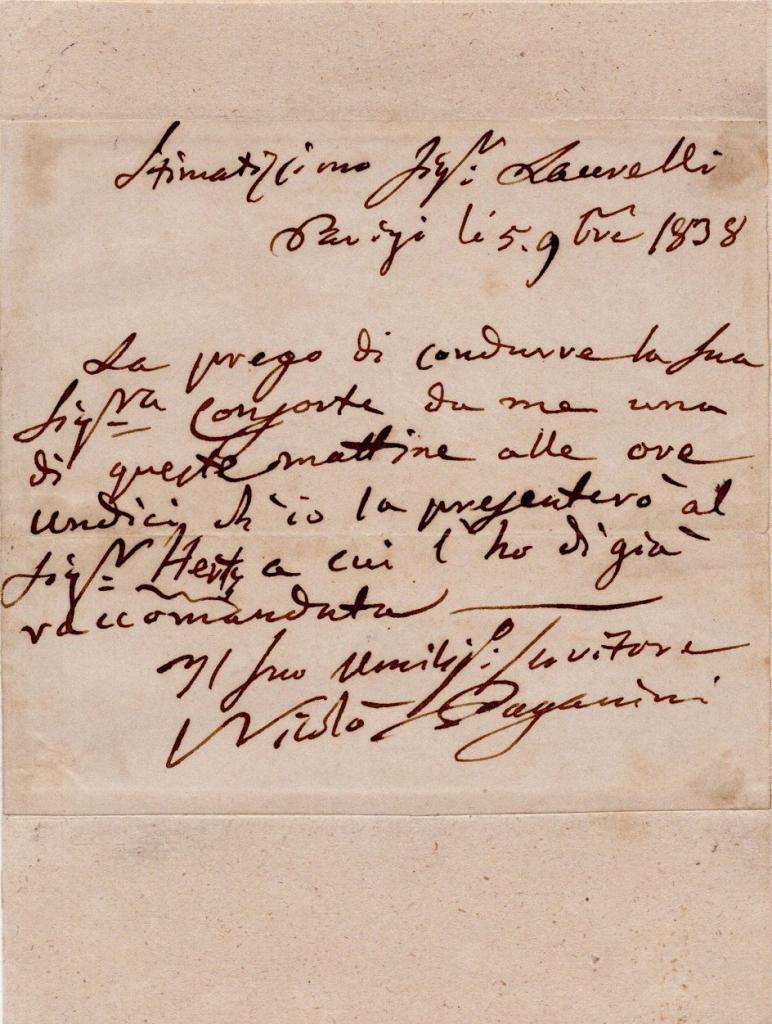 Stimatissimo Sig.r Laurelli
Parigi li 5. 9bre 1838
La prego di condurre la sua
Sig.ra Consorte da me una
di queste mattine alle ore
undici ch'io la presenterò al
Sig.r Hertz a cui l'ho di già
raccomandata
Il suo umilis.o servitore
Nicolò Paganini